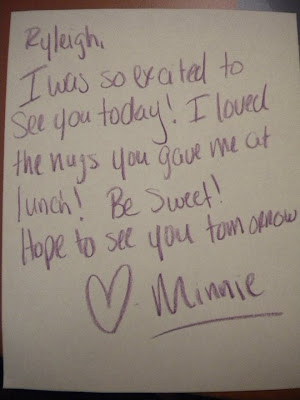 Ryleigh,
I was so excited to
See you today! I loved
the hugs you gave me at
lunch! Be Sweet!
Hope to see you tomorrow
♡ Minnie